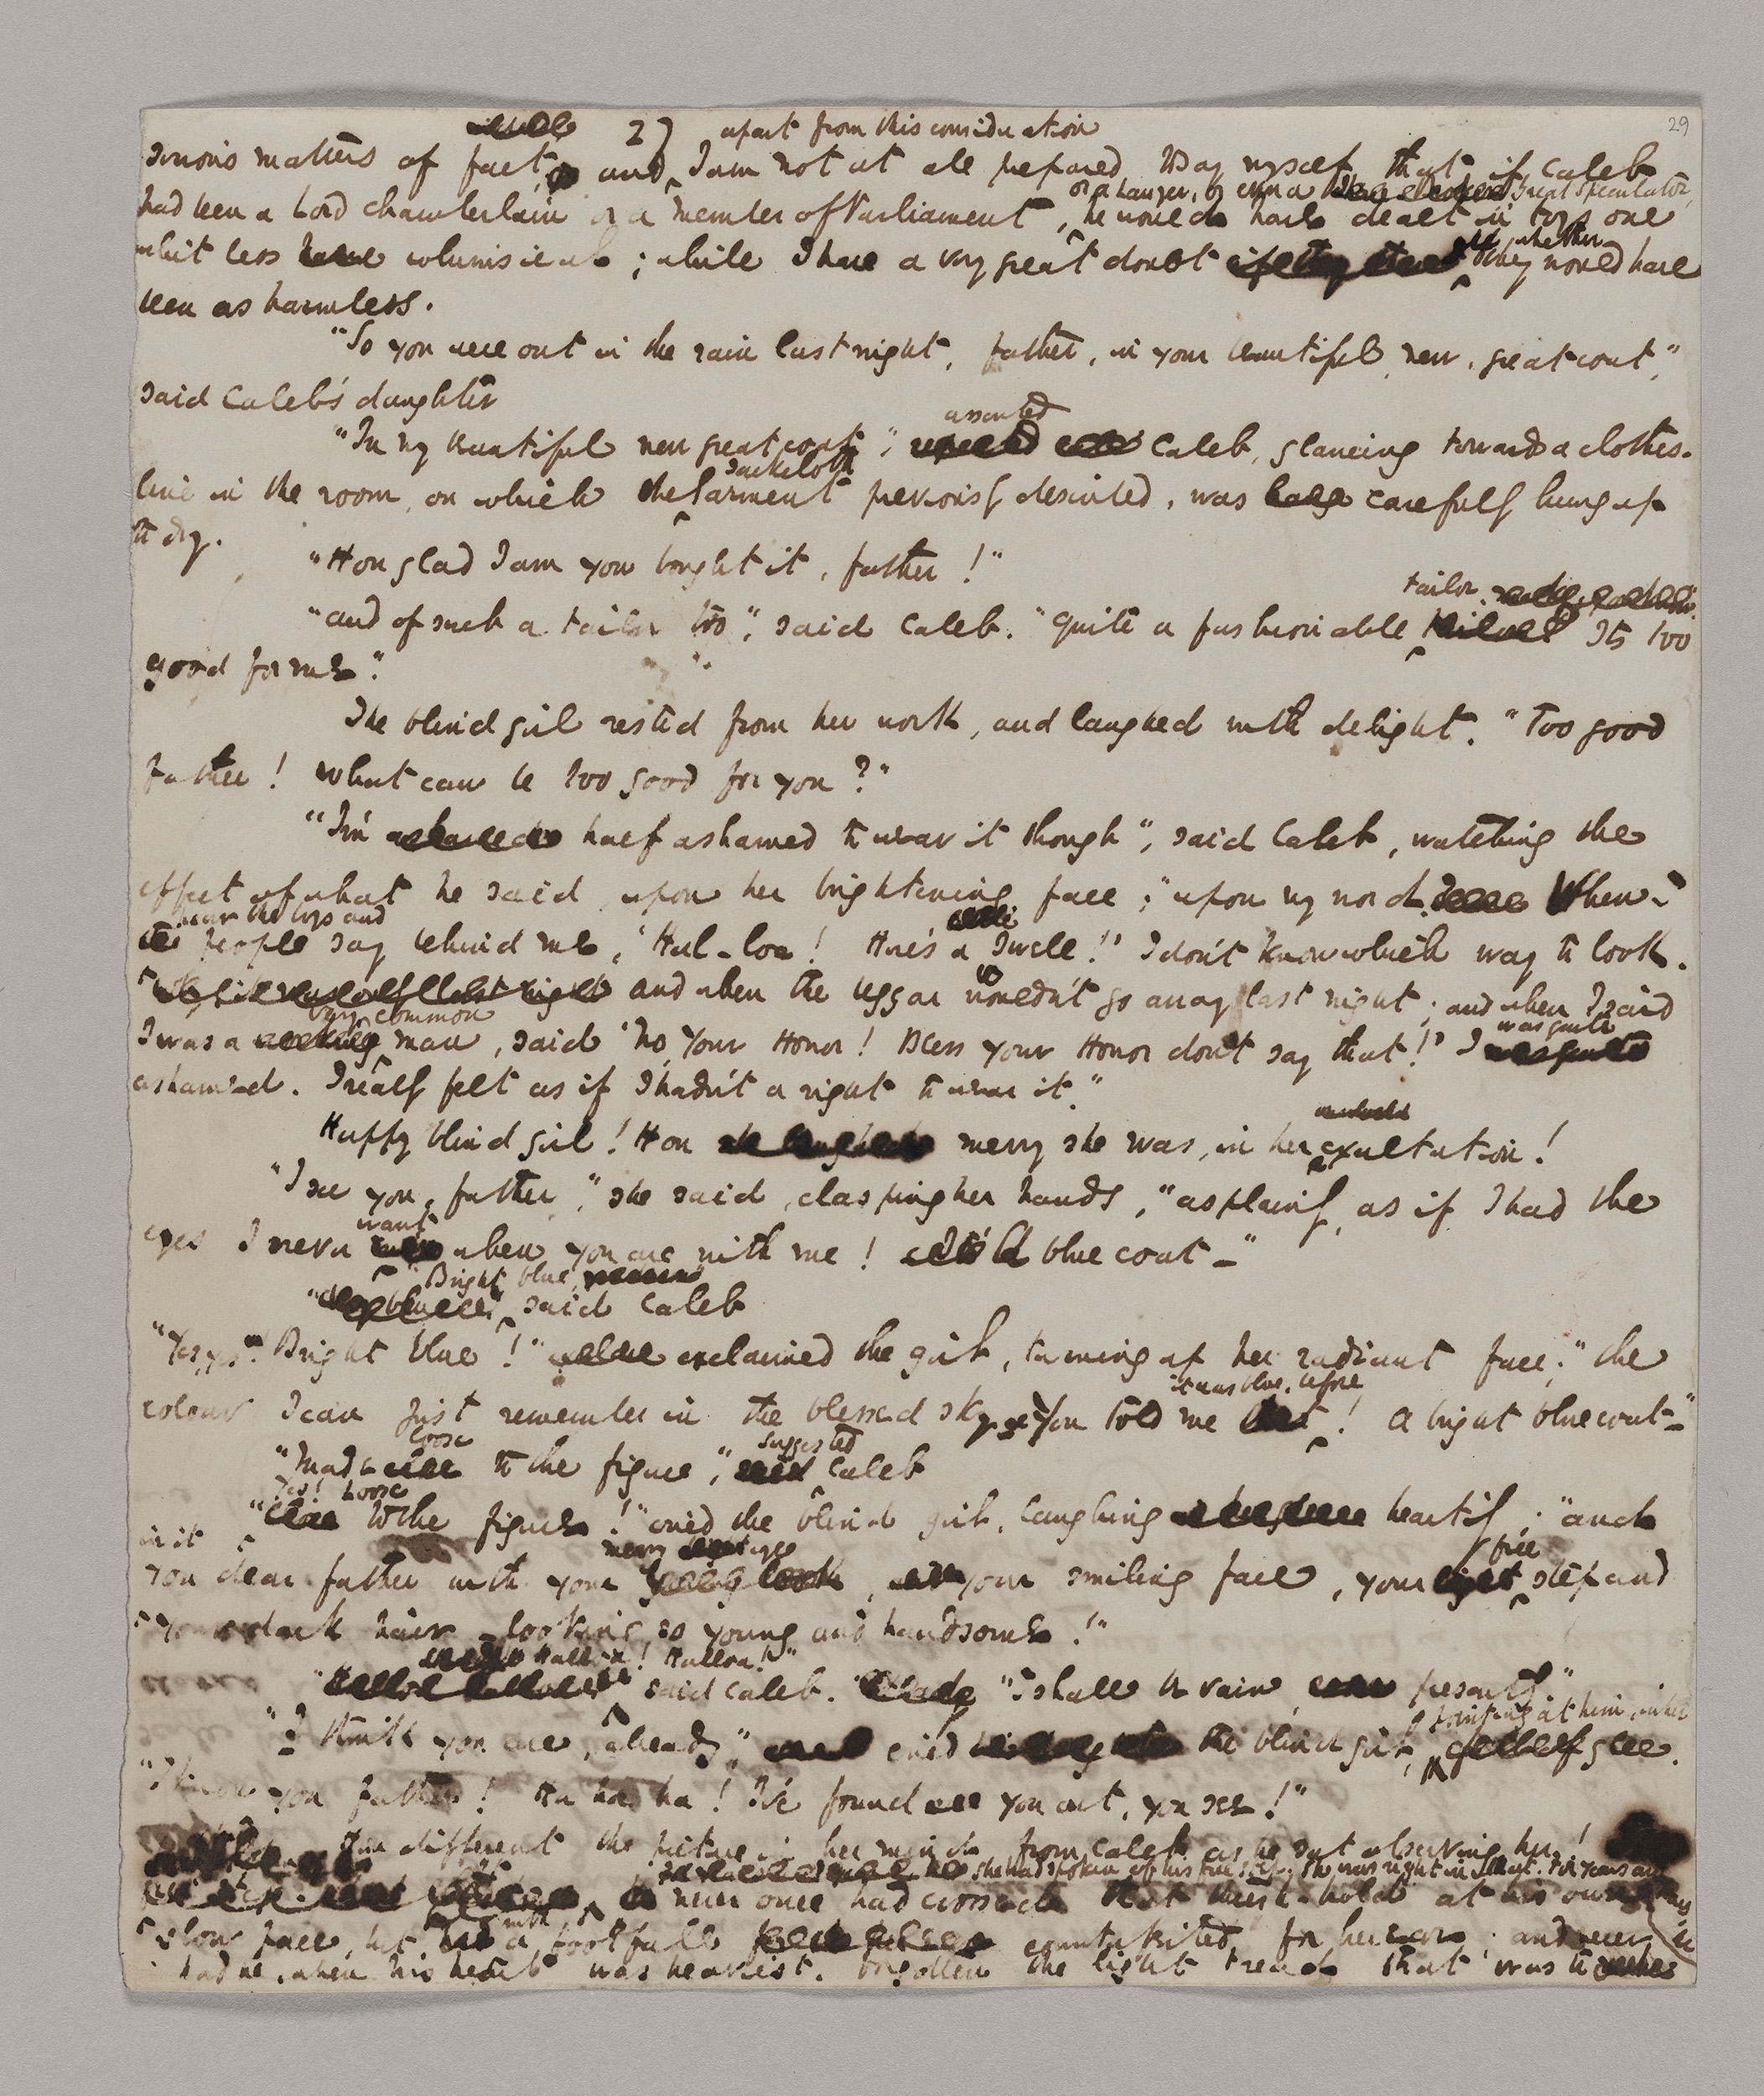 27 apart from this consideration
29
serious matters of fact; and I am not at all prepared to say myself, that if Caleb
or a lawyer, or even a great speculator,
had been a Lord Chamberlain or a member of Parliament, he would have dealt in toys one
whit less whimsical; while I have a very great doubt whether they would have
been as harmless.
"So you were out in the rain last night, father, in your beautiful, new, great coat,"
said Caleb's daughter
assented
"In my beautiful new great coat," Caleb, glancing towards a clothes-
sackcloth
line in the room, on which the garment previously described, was carefully hung up
to dry.
"How glad I am you bought it, father!"
tailor.
"and of such a tailor too", said Caleb. "Quite a fashionable Its too
good for me."
The blind girl rested from her work, and laughed with delight. "Too good
father! What can be too good for you?"
"I'm half ashamed to wear it though", said Caleb, watching the
effect of what he said, upon her brightening face; "upon my word. When I
hear the boys and
people say behind me, 'Hal-loa! Here's a Swell!' I don't know which way to look.
and when the beggar wouldn't go away last night; and when I said
very common
I was a man, said 'No, Your Honor! Bless your Honor don't say that!' I was quite
ashamed. I really felt as if I hadn't a right to wear it."
Happy blind girl! How merry she was, in her exultation!
"I see you, father," she said, clasping her hands, "as plainly, as if I had the
want
eyes I never when you are with me! A blue coat—"
"Bright blue,"
said Caleb
"Yes, yes! Bright blue!" exclaimed the girl, turning up her radiant face; "the
it was blue, before
colour I can just remember in the blessed sky! You told me ! A bright blue coat—"
loose suggested
"Made to the figure," Caleb
Yes! loose
" to the figure!" cried the blind girl, laughing heartily; "and
in it merry eye free
you dear father with your , your smiling face, your step and
your dark hair—looking so young and handsome!"
"Halloa! Halloa!"
said Caleb. "I shall be vain, presently"
pointing at him, in her
"I think you are, already," cried the blind girl, glee.
"I know you father! Ha ha ha! I've found you out, you see!"
How different the picture in her mind from Caleb, as he sat observing her!
she had spoken of his free step. She was right in that. For years and
never once had crossed that threshold at his own
slow pace, but with a footfall counterfeited for her ear; and never
had he, when his heart was heaviest, forgotten the light tread that was to